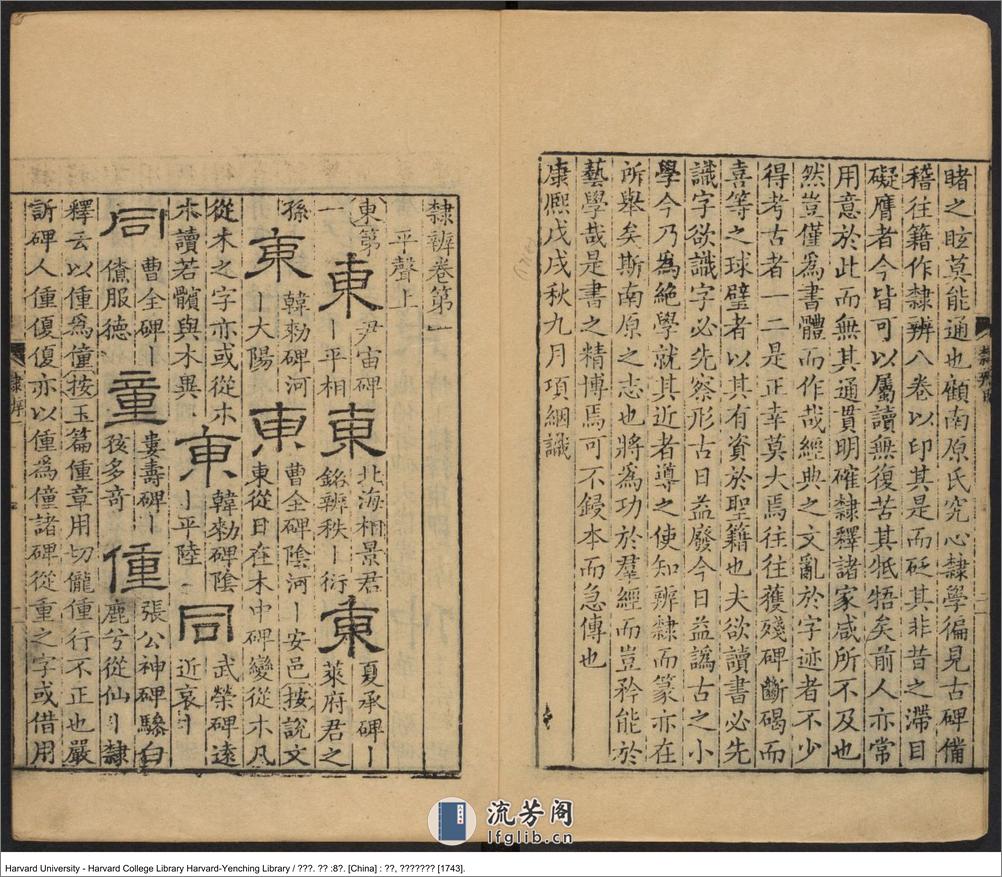 睹之眩莫能通也顧南原氏究心隸學徧見古碑備
稽往籍作隸辨八卷以印其是而砭其非昔之滯目
礙膺者今皆可以屬讀無復苦其牴牾矣前人亦常
用意於此而無其通貫明確隸釋諸家咸所不及也
然豈僅為書體而作哉經典之文亂於字迹者不少
得考古者一二是正幸莫大焉往往獲殘碑斷碣而
喜等之球璧者以其有資於聖籍也夫欲讀書必先
識字欲識字必先察形古日益廢今日益譌古之小
學今乃為絕學就其近者導之使知辨隸而篆亦在
所舉矣斯南原之志也將為功於羣經而豈矜能於
藝學哉是書之精博焉可不鋟本而急傳也
康熙戊戌秋九月項絪識
二
隸辨卷第一
平聲上
東第一
東 尹宙碑丨平相
東 北海相景君銘辨秩丨衍
東 夏承碑丨萊府君之孫
東 韓勑碑河丨大陽
東 曹全碑陰河丨安邑按說文東從日在木中碑變從木凡從木之字亦或從木木讀若髕與木異
東 韓勑碑陰丨平陸
同 武榮碑遠近哀丨
同 曹全碑丨儕服德
童 婁壽碑丨孩多奇
僮 張公神碑驂白鹿兮從仙丨隸釋云以僮為僮按玉篇僮章用切儱僮行不正也嚴訢碑人僮優優亦以僮為僮諸碑從重之字或借用
流芳阁
lfglib.cn
Harvard University - Harvard College Library Harvard-Yenching Library / ???. ?? :8?. [China] : ??, ??????? [1743].